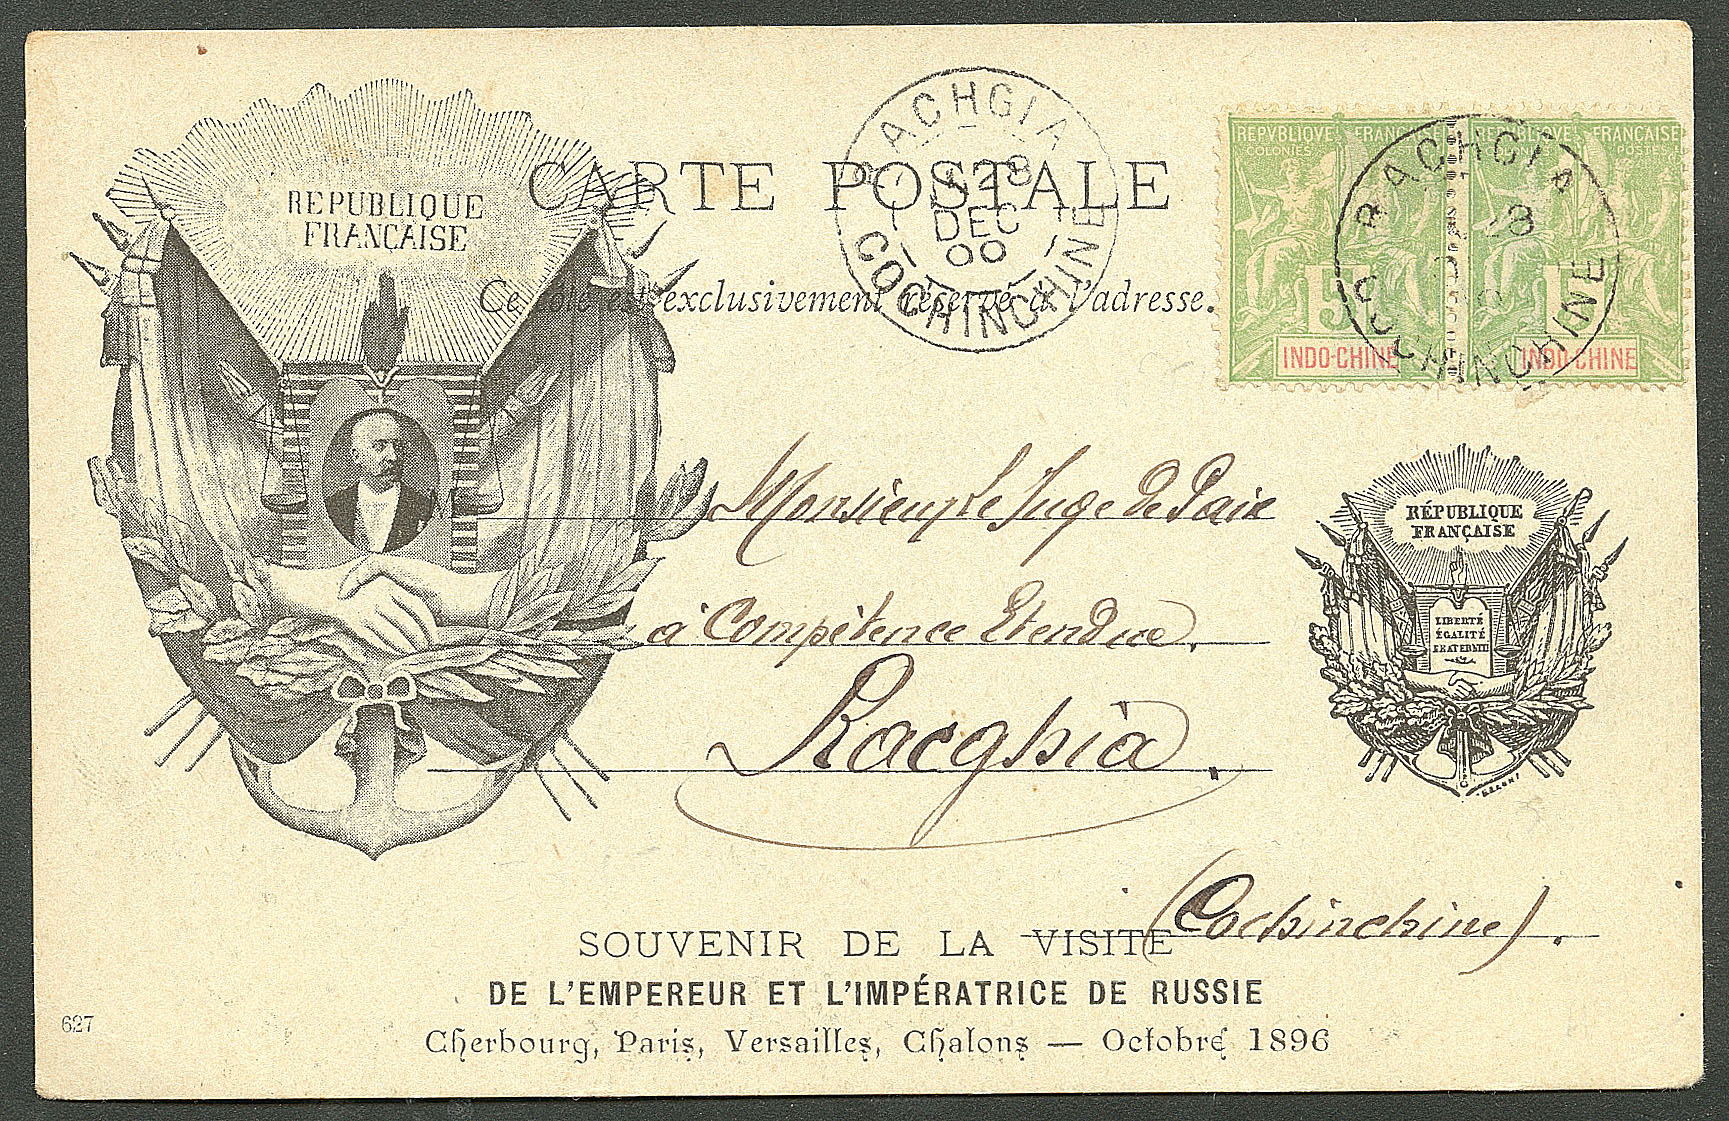 RACHGIA
28
DEC
00
COCHINCHINE
REPVBLIQVE FRANÇAISE
COLONIES POSTES
5
INDO-CHINE
REPVBLIQVE FRANÇAISE
COLONIES POSTES
5
INDO-CHINE
RACHGIA
28
COCHINCHINE
REPUBLIQUE
FRANÇAISE
CARTE POSTALE
Ce côté est exclusivement réservé à l'adresse.
Monsieur le Juge de Paix
à Compétence Etendue
Rachgia.
(Cochinchine).
RÉPUBLIQUE
FRANÇAISE
LIBERTÉ
ÉGALITÉ
FRATERNITÉ
SOUVENIR DE LA VISITE
DE L'EMPEREUR ET L'IMPÉRATRICE DE RUSSIE
Cherbourg, Paris, Versailles, Chalons — Octobre 1896
627